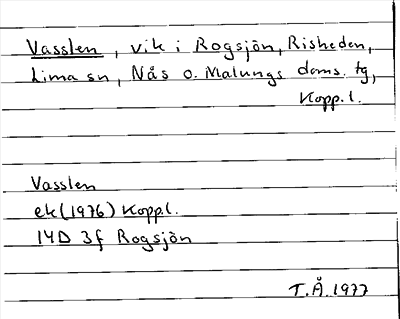 Vasslen, vik i Rogsjön, Risheden,
Lima sn, Nås o. Malungs doms. tg,
Kopp. l.
Vasslen
ek (1976) Kopp.l.
14D 3f Rogsjön
T.Å. 1977